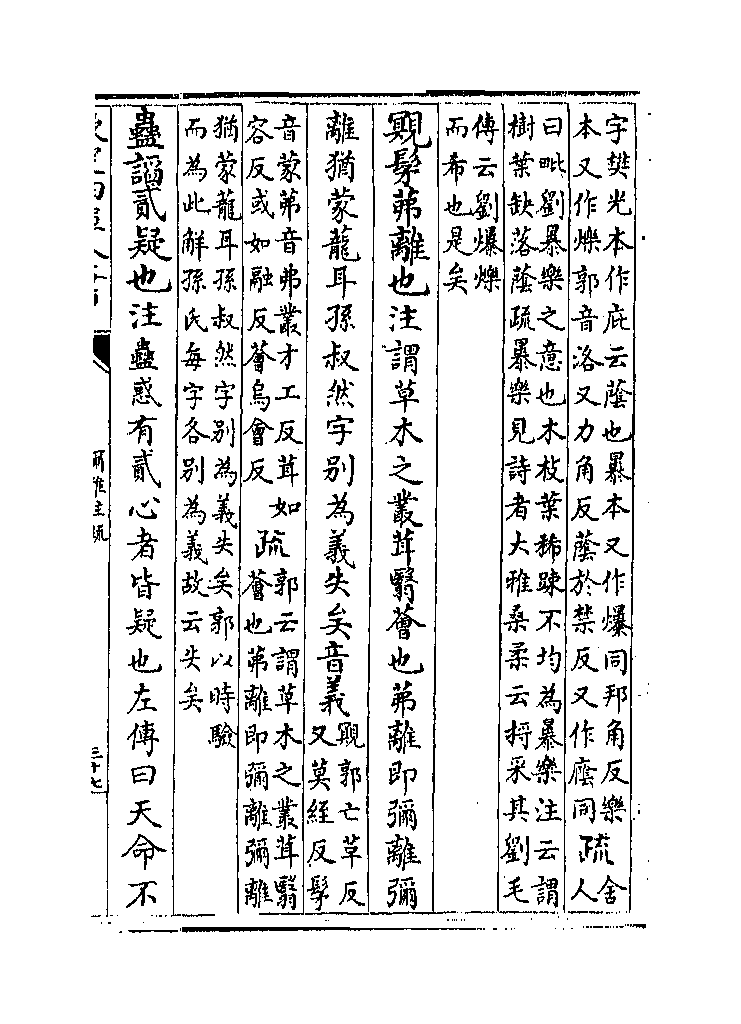 字樊光本作庇云蔭也㬥本又作爆同邦角反樂　疏舍
本又作爍郭音洛又力角反蔭於禁反又作廕同　人
曰毗劉㬥樂之意也木枝葉稀踈不均為㬥樂注云謂
樹葉缺落蔭疏㬥樂見詩者大雅桑柔云捋采其劉毛
傳云劉爆爍
而希也是矣
覭髳茀離也注謂草木之叢茸翳薈也茀離即彌離彌
離猶蒙蘢耳孫叔然字別為義失矣音義
覭郭亡草反
又莫經反髳
音蒙茀音弗叢才工反茸如
容反或如融反薈烏會反
疏
郭云謂草木之叢茸翳
薈也茀離即彌離彌離
猶蒙蘢耳孫叔然字別為義失矣郭以時驗
而為此解孫氏每字各別為義故云失矣
蠱謟貳疑也注蠱惑有貳心者皆疑也左傳曰天命不
爾雅注疏
三十七